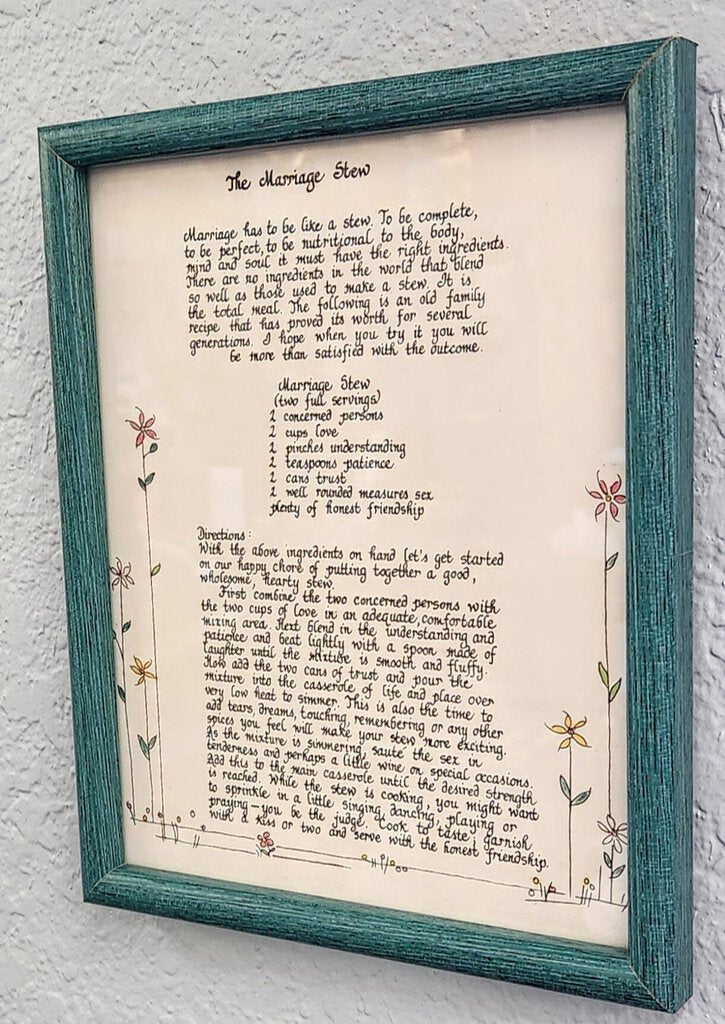 The Marriage Stew
Marriage has to be like a stew. To be complete,
to be perfect, to be nutritional to the body,
mind and soul it must have the right ingredients.
There are no ingredients in the world that blend
so well as those used to make a stew. It is
the total meal. The following is an old family
recipe that has proved its worth for several
generations. I hope when you try it you will
be more than satisfied with the outcome.
Marriage Stew
(two full servings)
2 concerned persons
2 cups love
2 pinches understanding
2 teaspoons patience
2 cans trust
2 well rounded measures sex
plenty of honest friendship
Directions:
With the above ingredients on hand let's get started
on our happy chore of putting together a good,
wholesome, hearty stew.
First combine the two concerned persons with
the two cups of love in an adequate, comfortable
mixing area. Next blend in the understanding and
patience and beat lightly with a spoon made of
laughter until the mixture is smooth and fluffy.
Now add the two cans of trust and pour the
mixture into the casserole of life and place over
very low heat to simmer. This is also the time to
add tears, dreams, touching, remembering or any other
spices you feel will make your stew more exciting.
As the mixture is simmering, sauté the sex in
tenderness and perhaps a little wine on special occasions.
Add this to the main casserole until the desired strength
is reached. While the stew is cooking, you might want
to sprinkle in a little singing, dancing, playing or
praying—you be the judge. Cook to taste, garnish
with a kiss or two and serve with the honest friendship.